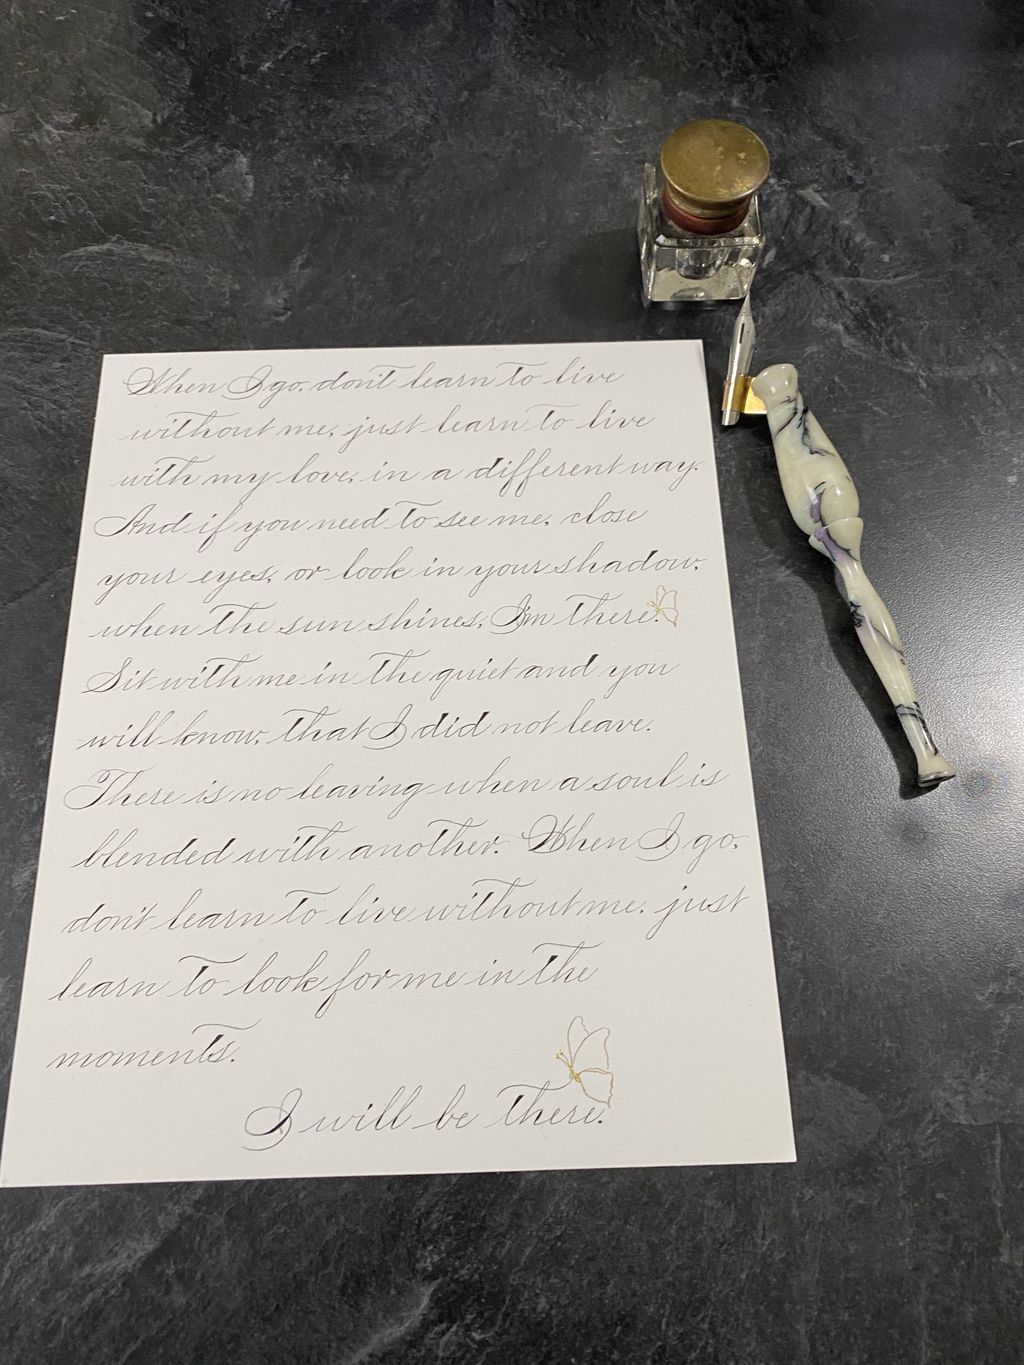 When I go, don't learn to live
without me, just learn to live
with my love, in a different way.
And if you need to see me, close
your eyes, or look in your shadow,
when the sun shines, I'm there.
Sit with me in the quiet and you
will know, that I did not leave.
There is no leaving when a soul is
blended with another. When I go,
don't learn to live without me, just
learn to look for me in the
moments.
I will be there.